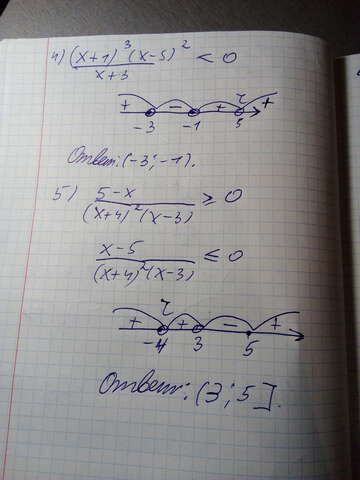 4) (x+1)³(x-5)² / x+3 < 0
+ - + r +
-3 -1 5
Ответ: (-3; -1).
5) 5-x / (x+4)²(x-3) ≥ 0
x-5 / (x+4)²(x-3) ≤ 0
+ r + - +
-4 3 5
Ответ: (3; 5].